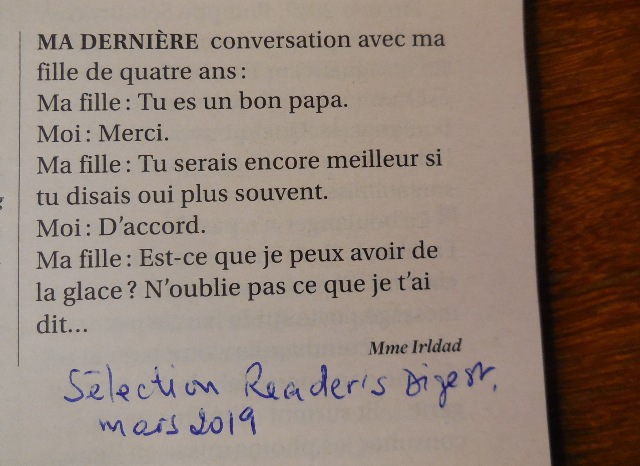 MA DERNIÈRE conversation avec ma
fille de quatre ans :
Ma fille : Tu es un bon papa.
Moi : Merci.
Ma fille : Tu serais encore meilleur si
tu disais oui plus souvent.
Moi : D'accord.
Ma fille : Est-ce que je peux avoir de
la glace ? N'oublie pas ce que je t'ai
dit...
Mme Irldad
Sélection Reader's Digest,
mars 2019